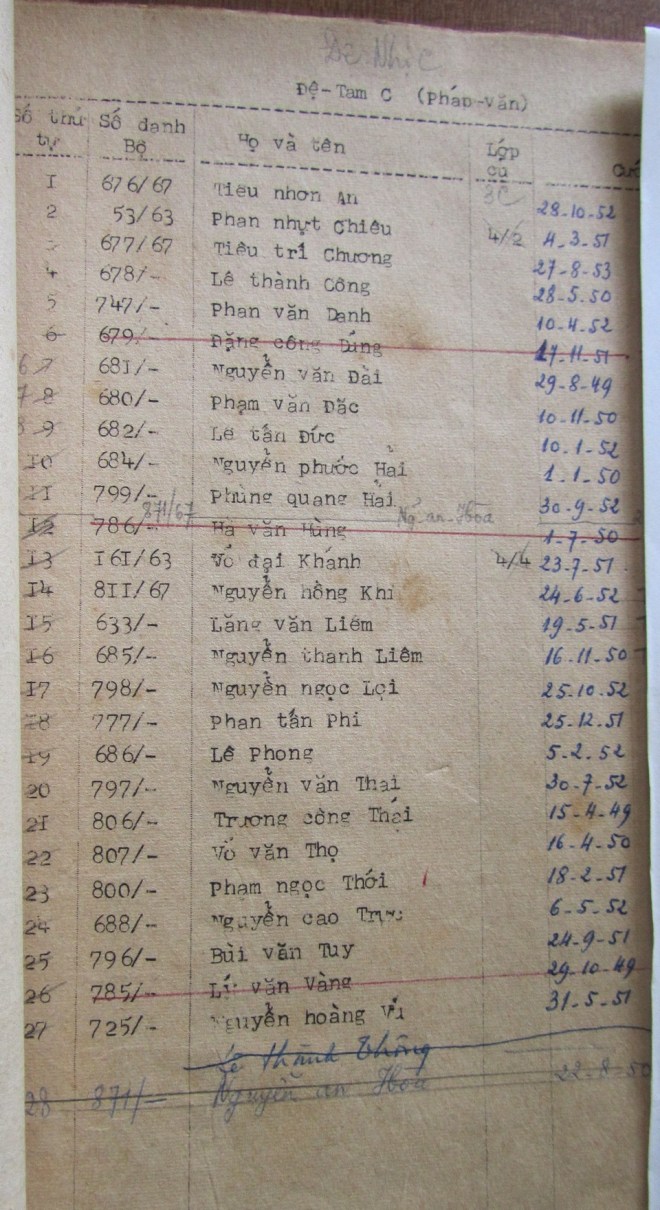 Đệ Nhị C
Đệ-Tam C (Pháp-Văn)
Số thứ tự Số danh Bộ Họ và tên Lớp cũ
3C
I 676/67 Tiêu nhơn An 28-10-52
2 53/63 Phan nhựt Chiêu 4/2 4-3-51
3 677/67 Tiêu trí Chương 27-8-53
4 678/- Lê thành Công 28-5-50
5 747/- Phan văn Danh 10-4-52
6 679/- Đặng công Dũng 17-11-51
6 7 681/- Nguyễn văn Đài 29-8-49
7 8 680/- Phạm văn Đặc 10-11-50
8 9 682/- Lê tấn Đức 10-1-52
I0 684/- Nguyễn phước Hải 1-1-50
II 799/- Phùng quang Hải 30-9-52
871/67 Ng. an-Hòa
I2 786/- Hà văn Hùng 1-7-50
I3 I6I/63 Võ đại Khánh 4/4 23-7-51
I4 8II/67 Nguyễn hồng Khi 24-6-52
I5 633/- Lăng văn Liêm 19-5-51
I6 685/- Nguyễn thanh Liêm 16-11-50
I7 798/- Nguyễn ngọc Lợi 25-10-52
I8 777/- Phan tấn Phi 25-12-51
I9 686/- Lê Phong 5-2-52
20 797/- Nguyễn văn Thai 30-7-52
2I 806/- Trương công Thái 15-4-49
22 807/- Võ văn Thọ 16-4-50
23 800/- Phạm ngọc Thới 18-2-51
24 688/- Nguyễn cao 6-5-52
25 796/- Bùi văn Tuy 24-9-51
26 785/- Lý văn Vàng 29-10-49
27 725/- Nguyễn hoàng Vũ 31-5-51
Lê thành Thông
28 871/- Nguyễn an Hòa 22-8-50